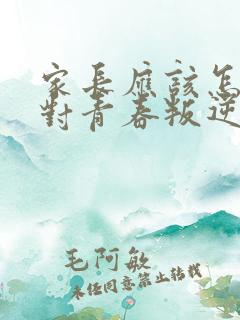 家長應該怎
對青春叛逆
毛阿敏
未經同意禁止轉載